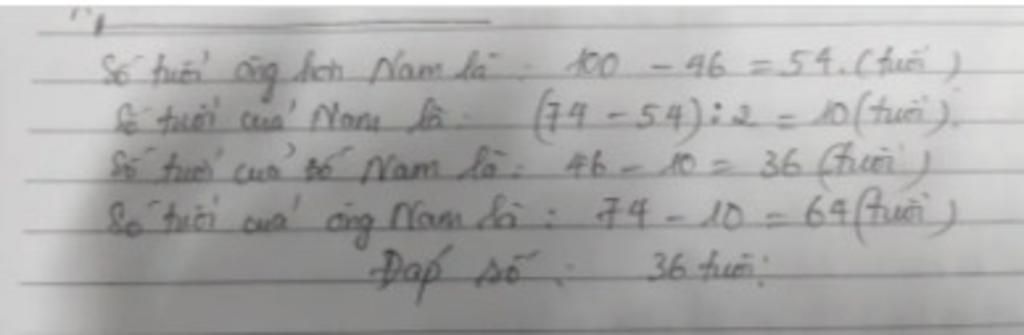 Số tuổi ông hơn Nam là: 100 - 46 = 54. (tuổi)
Số tuổi của Nam là: (74 - 54) : 2 = 10 (tuổi).
Số tuổi của bố Nam là: 46 - 10 = 36 (tuổi)
Số tuổi của ông Nam là: 74 - 10 = 64 (tuổi)
Đáp số: 36 tuổi.